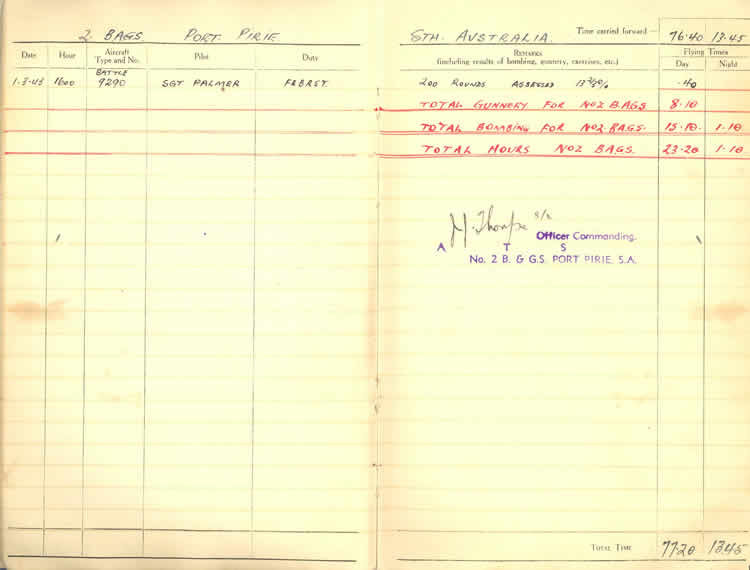 2 BAGS PORT PIRIE STH. AUSTRALIA. Time carried forward — 76.40 13.45
Date Hour Aircraft Type and No. Pilot Duty REMARKS (including results of bombing, gunnery, exercises, etc.) Flying Times Day Night
1-3-43 1600 BATTLE 9290 SGT PALMER 200 ROUNDS ASSESSED .40
TOTAL GUNNERY FOR NO2 BAGS 8.10
TOTAL BOMBING FOR NO2 BAGS. 15.10. 1.10
TOTAL HOURS NO2 BAGS. 23.20 1.10
Thorpe
Officer Commanding.
A T S
No. 2 B. & G.S. PORT PIRIE, S.A.
TOTAL TIME 77.20 13.45